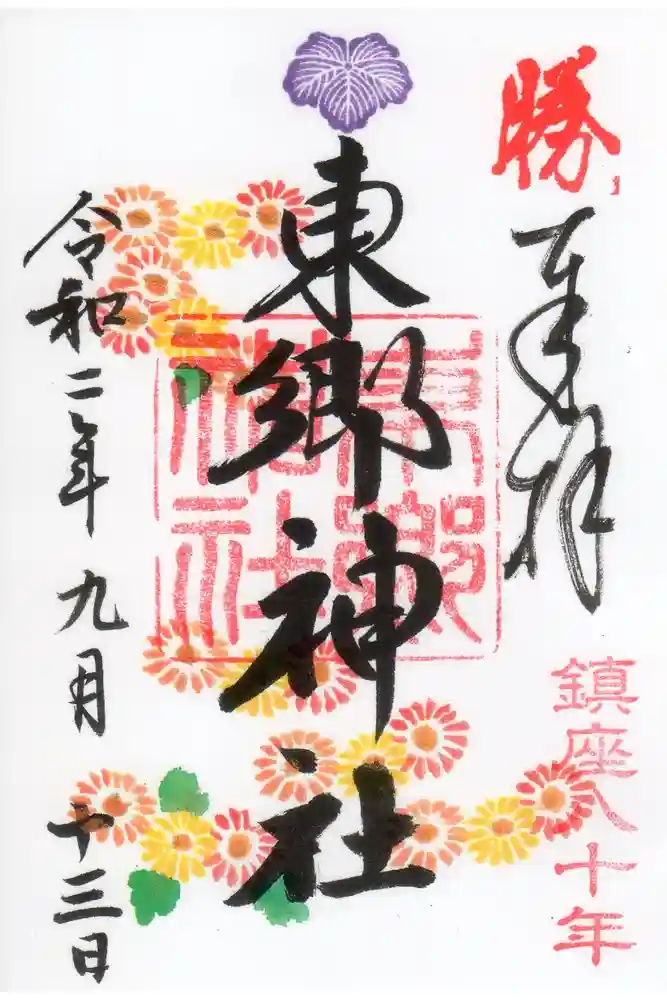 勝
奉拝
鎮座八十年
東郷神社
東郷神社
令和二年 九月 十三日